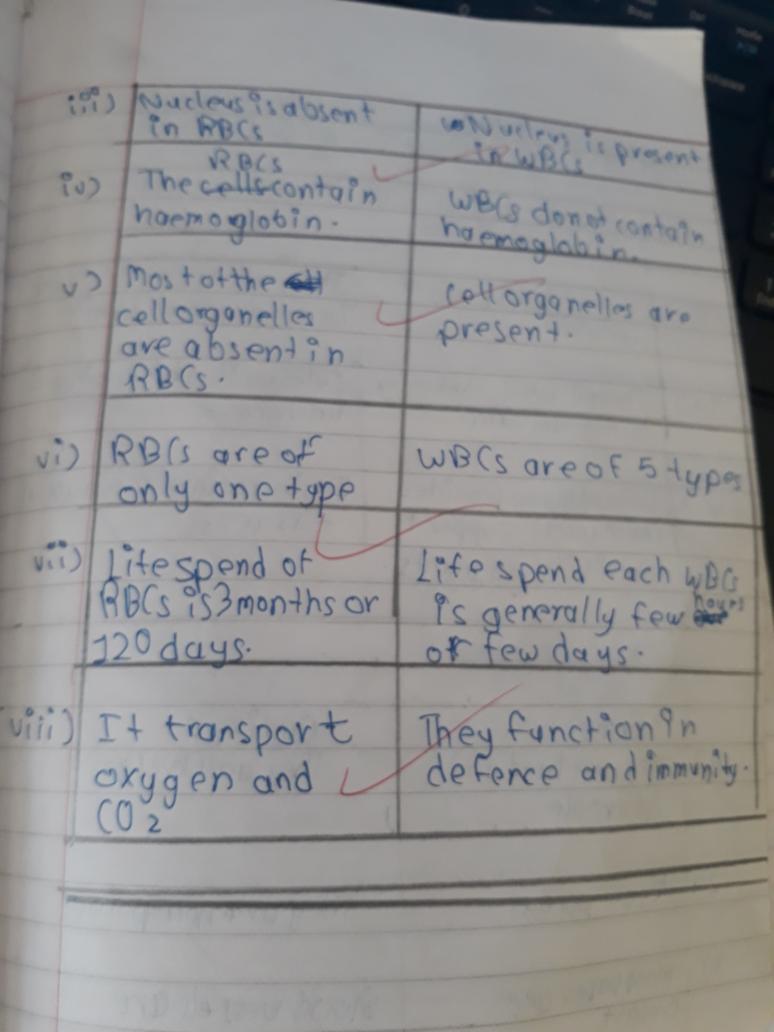 iii) Nucleus is absent
in RBCs
Nucleus is present
in WBCs
RBCs
iv) The cells contain
haemoglobin.
WBCs do not contain
haemoglobin.
v) Most of the
cell organelles
are absent in
RBCs.
Cell organelles are
present.
vi) RBCs are of
only one type
WBCs are of 5 types
vii) Life spend of
RBCs is 3 months or
120 days.
Life spend each WBCs
is generally few hours
or few days.
viii) It transport
oxygen and
CO2
They function in
defence and immunity.